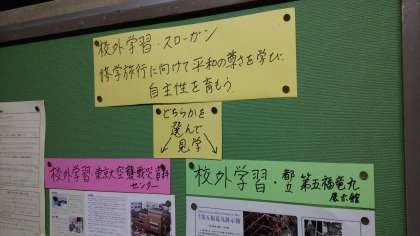 校外学習・スローガン
修学旅行に向けて平和の尊さを学び、
自主性を育もう
どちらかを
選んで
見学
校外学習 東京大空襲戦災資料
センター
校外学習・都立 第五福竜丸
展示館